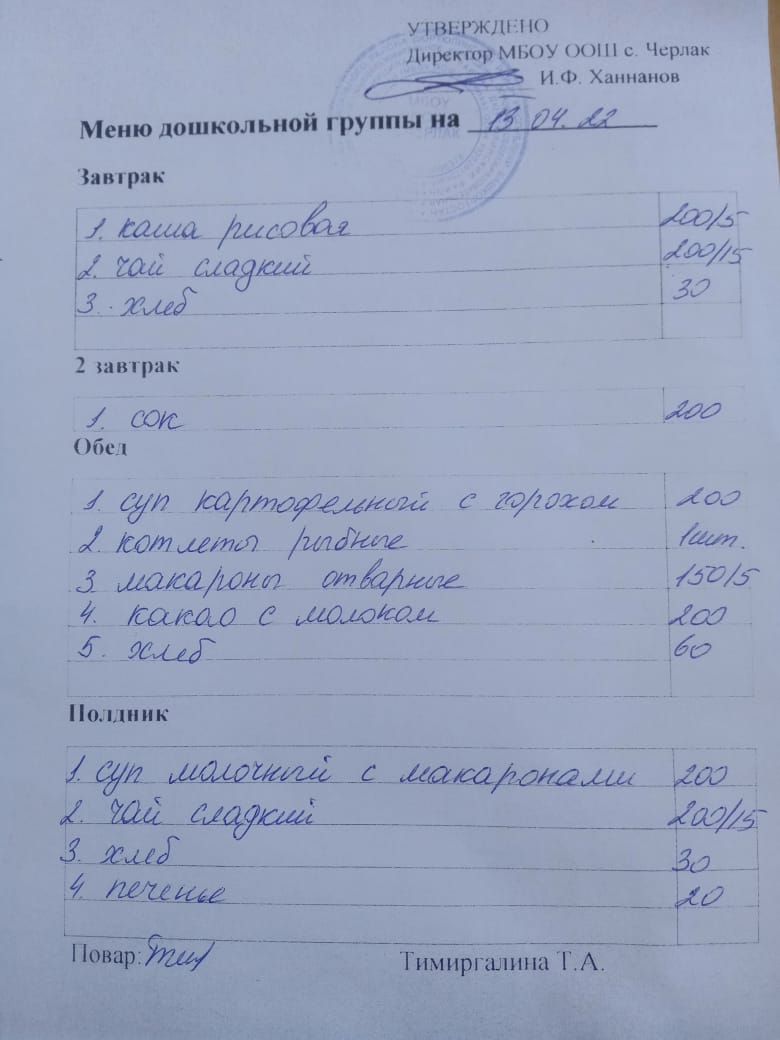 УТВЕРЖДЕНО
Директор МБОУ ООШ с. Черлак
И.Ф. Ханнанов
МБОУ
Меню дошкольной группы на 13.04.22
Завтрак
1. каша рисовая 200/5
2. чай сладкий 200/15
3. хлеб 30
2 завтрак
1. сок 200
Обед
1. суп картофельный с горохом 200
2. котлеты рыбные 1шт.
3. макароны отварные 150/5
4. какао с молоком 200
5. хлеб 60
Полдник
1. суп молочный с макаронами 200
2. чай сладкий 200/15
3. хлеб 30
4. печенье 20
Повар: Тимиргалина Т.А.